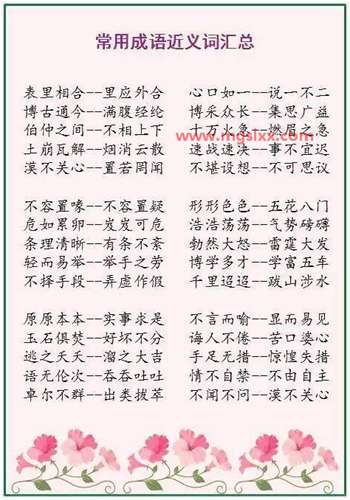 常用成语近义词汇总
表里相合--里应外合 心口如一--说一不二
博古通今--满腹经纶 博采众长--集思广益
伯仲之间--不相上下 十万火急--燃眉之急
www.mgslxx.com
土崩瓦解--烟消云散 速战速决--事不宜迟
漠不关心--置若罔闻 不堪设想--不可思议
不容置喙--不容置疑 形形色色--五花八门
危如累卵--岌岌可危 浩浩荡荡--气势磅礴
条理清晰--有条不紊 勃然大怒--雷霆大发
轻而易举--举手之劳 博学多才--学富五车
不择手段--弄虚作假 千里迢迢--跋山涉水
原原本本--实事求是 不言而喻--显而易见
玉石俱焚--好坏不分 诲人不倦--苦口婆心
逃之夭夭--溜之大吉 手足无措--惊惶失措
语无伦次--吞吞吐吐 情不自禁--不由自主
卓尔不群--出类拔萃 不闻不问--漠不关心